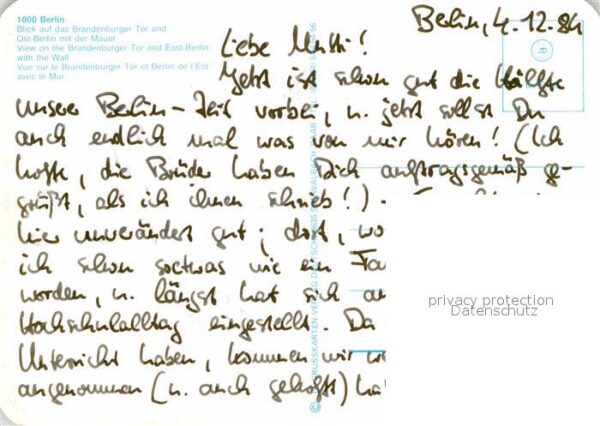 1000 Berlin
Blick auf das Brandenburger Tor und
Ost-Berlin mit der Mauer
View on the Brandenburger Tor and East-Berlin
with the Wall
Vue sur le Brandenburger Tor et Berlin de l'Est
avec le Mur
Berlin, 4.12.84
Liebe Mutti!
Jetzt ist schon gut die Hälfte
unserer Berlin-Zeit vorbei, u. jetzt sollst Du
auch endlich mal was von mir hören! (Ich
hoffe, die Brüder haben Dich auftragsgemäß ge-
grüßt, als ich ihnen schrieb!).
hier unverändert gut; dort, wo
ich schon soetwas wie ein Fa
worden, u. längst hat sich
Hochschulalltag eingestellt. Da
Unterricht haben, kommen wir
angenommen (u. auch gehofft) ha
privacy protection
Datenschutz